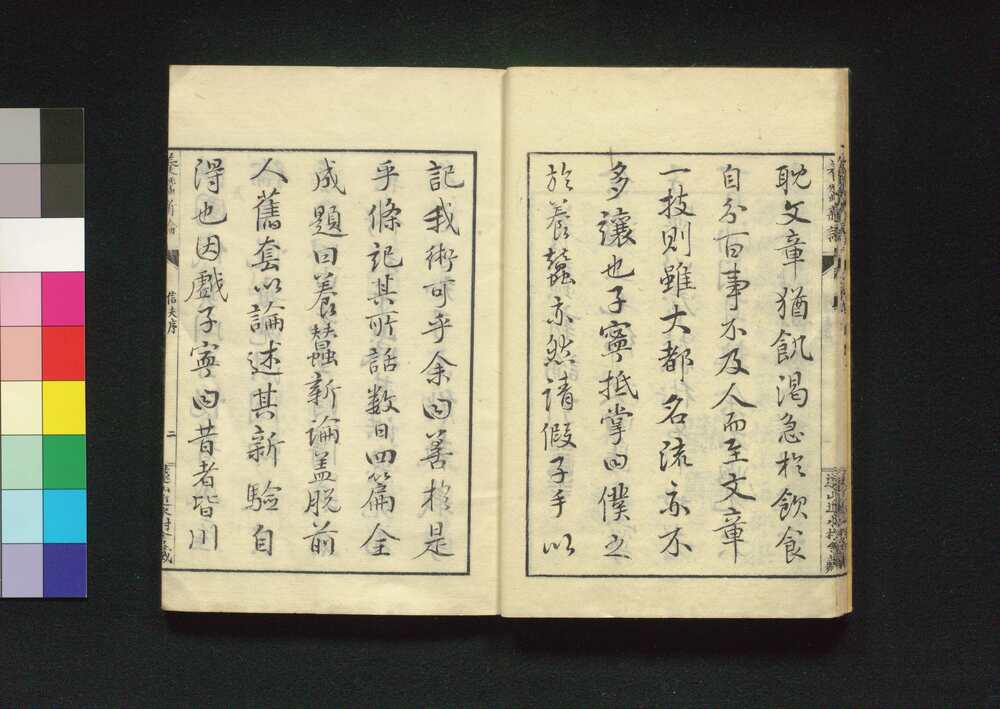 耽文章猶飢渴急於飲食
自分百事不及人而至文章
一技則雖大都名流亦不
多讓也子寧抵掌曰僕之
於養蠶亦然請假子手以
記我術可乎余曰善於是
乎條記其所話数日四篇全
成題曰養蠶新論盖脱前
人舊套以論述其新驗自
得也因戲子寧曰昔者皆川
養蠶新論
信夫序
二